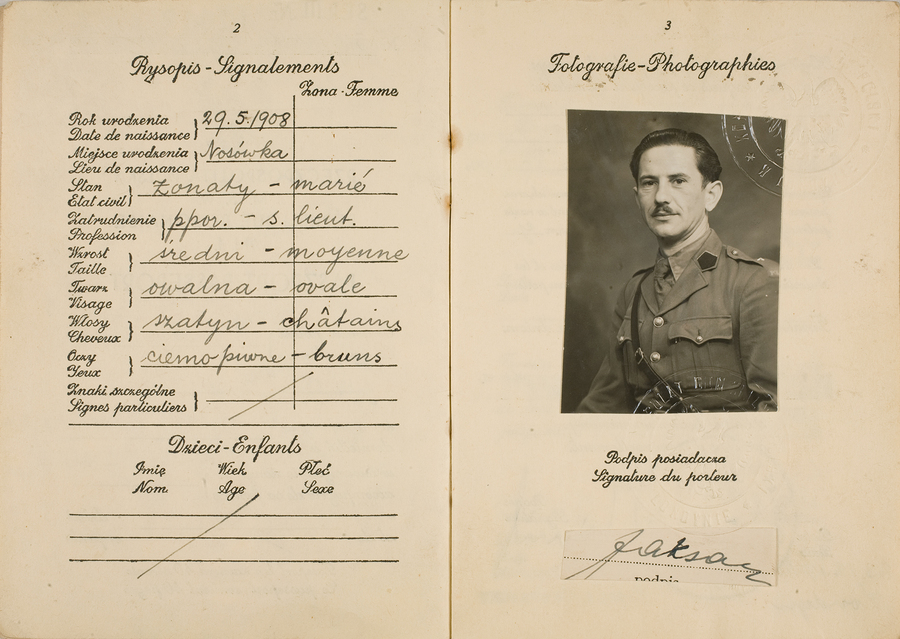 2
Rysopis - Signalements
Żona - Femme
Rok urodzenia
Date de naissance
29.5.1908
Miejsce urodzenia
Lieu de naissance
Nosówka
Stan
Etat civil
żonaty - marié
Zatrudnienie
Profession
ppor. - s. lieut.
Wzrost
Taille
średni - moyenne
Twarz
Visage
owalna - ovale
Włosy
Cheveux
szatyn - châtains
Oczy
Yeux
ciemnopiwne - bruns
Znaki szczególne
Signes particuliers
Dzieci - Enfants
Imię Wiek Płeć
Nom Age Sexe
3
Fotografie - Photographies
Podpis posiadacza
Signature du porteur
podpis